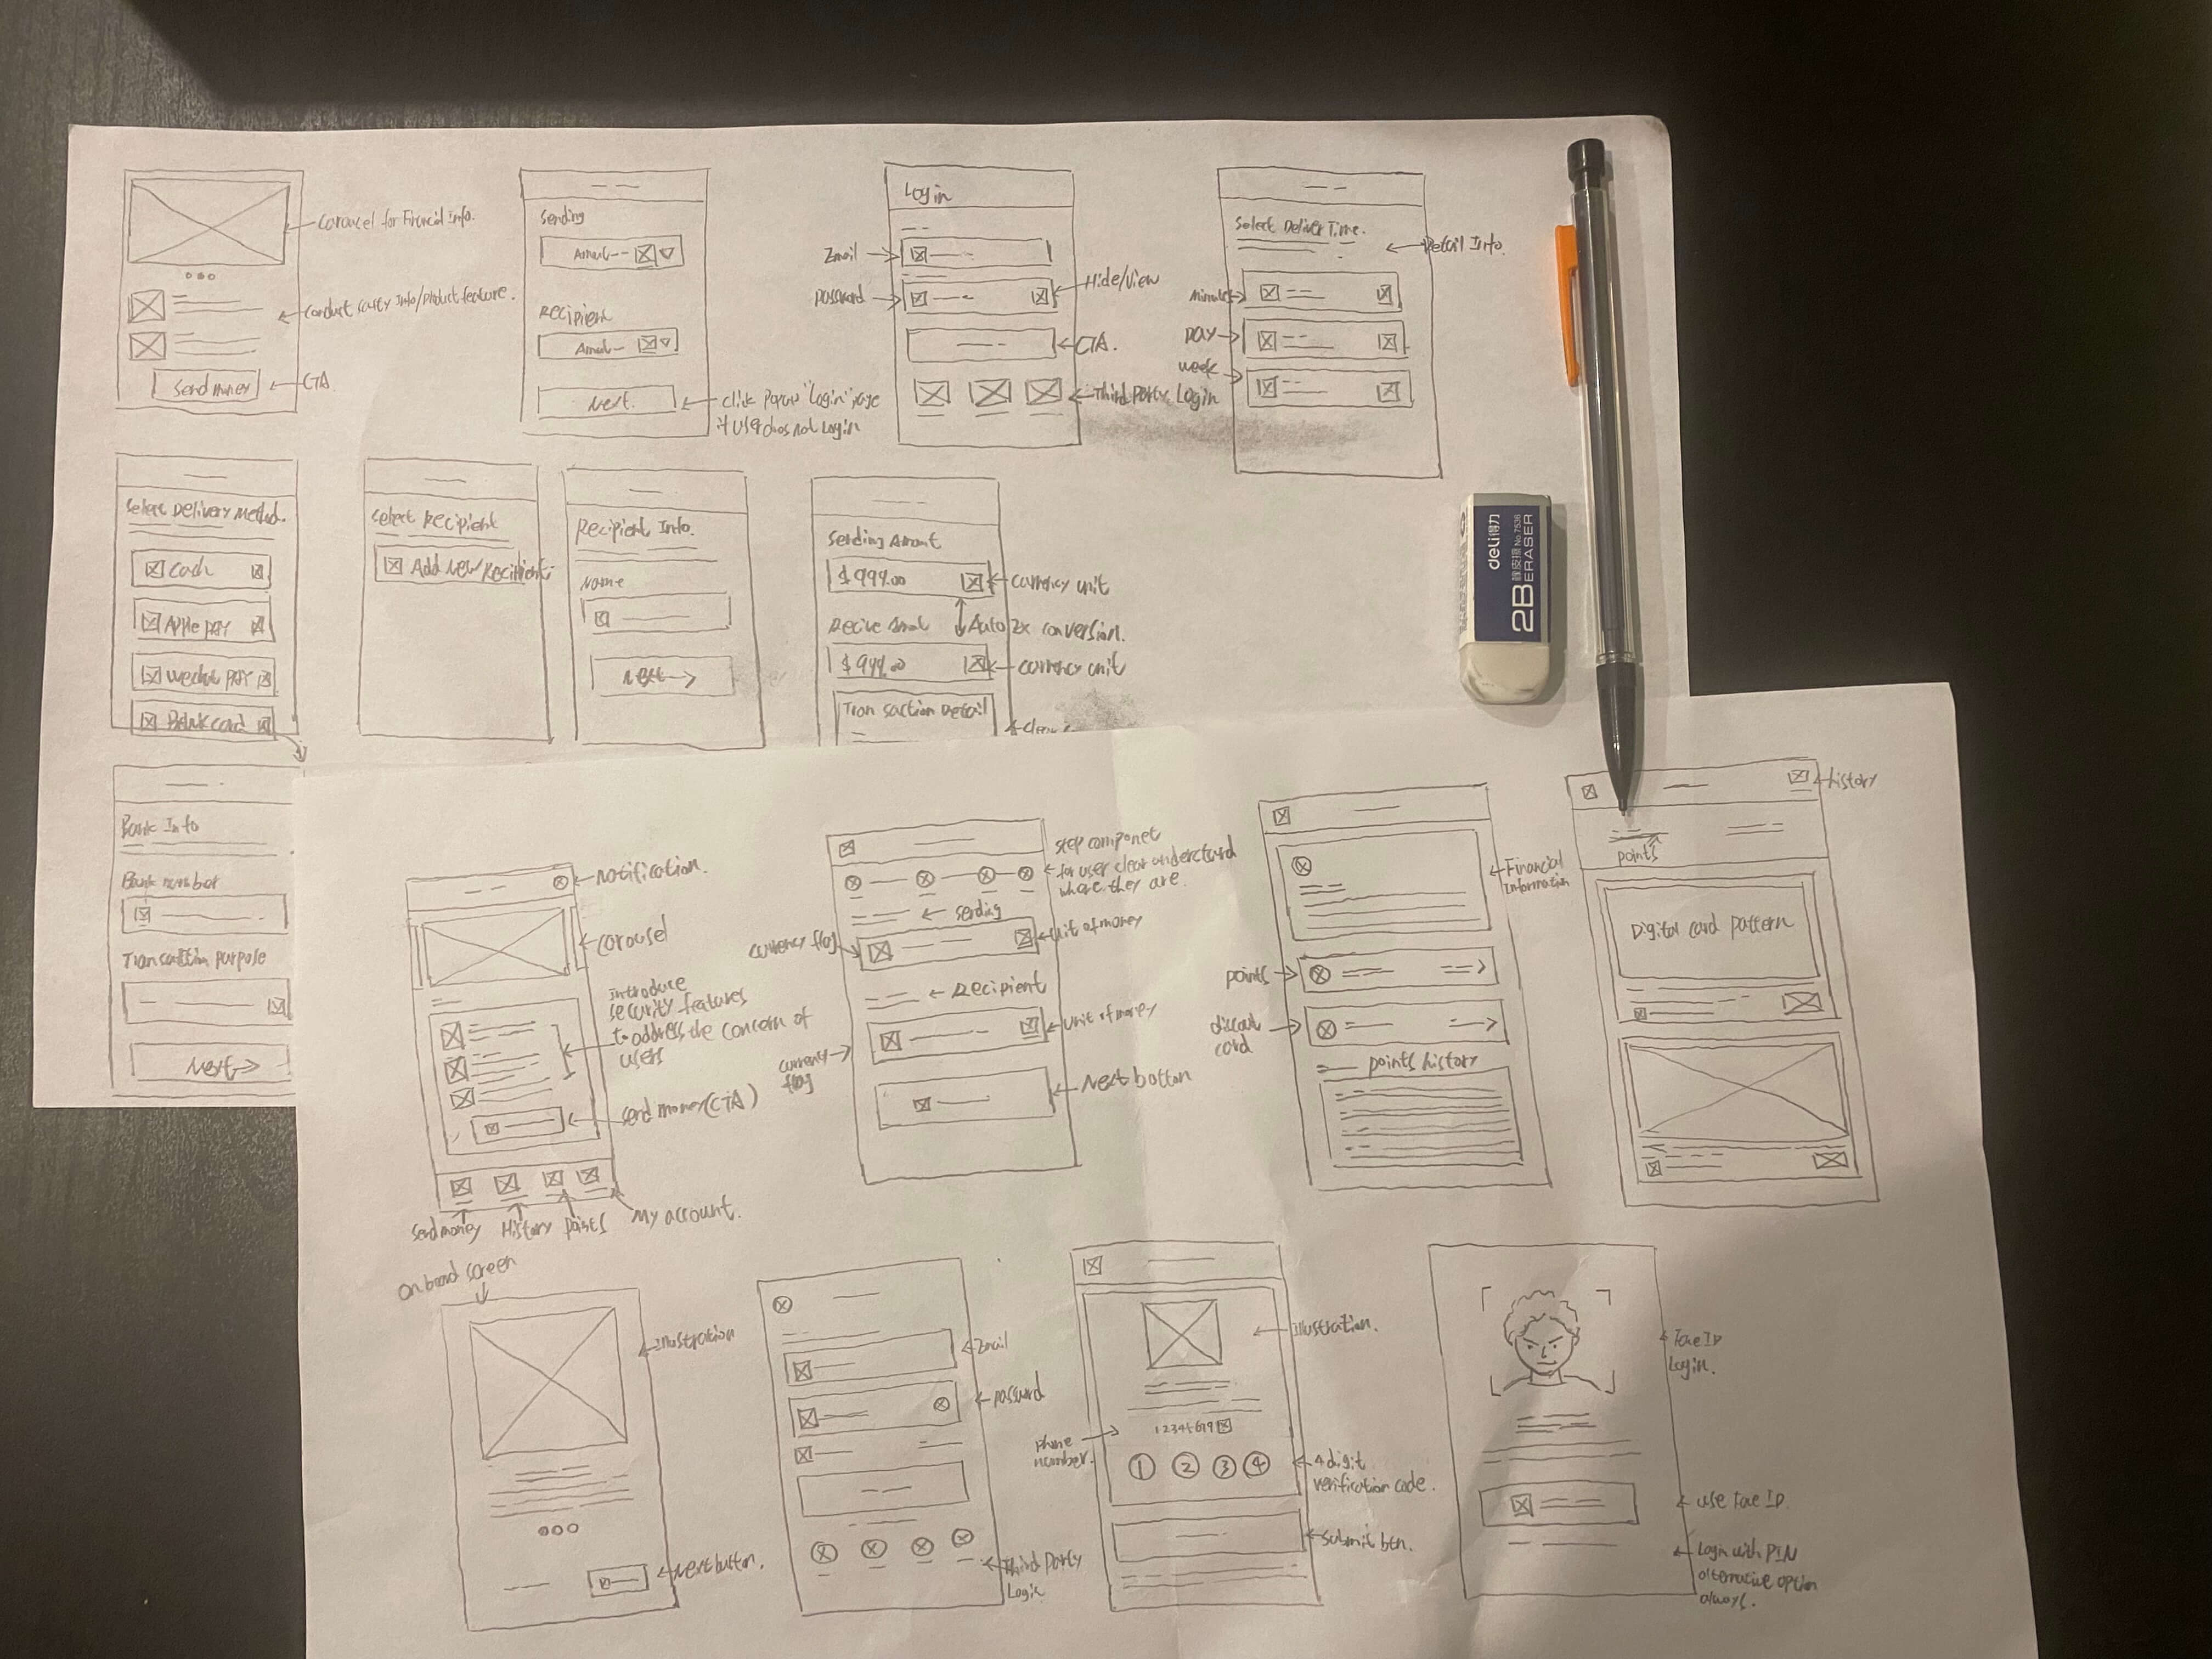 Carousel for Financial Info.
Info/product feature.
Send money
CTA
Sending
Recipient
Next.
click "Login" page
if user does not Login
Login
Email
password
Hide/View
CTA.
Third Party Login
Select Deliver Time.
Detail Info.
Minutes
DAY
week
Select Delivery Method.
Cash
Apple pay
wechat pay
Bank card
Select Recipient
Add New Recipient
Recipient Info.
Name
Next
Sending Amount
$999.00
currency unit
Auto conversion.
$999.00
currency unit
Transaction Detail
deli得力
橡皮擦 No.7536
2B ERASER
Bank Info
Bank number
Transaction purpose
Next
notification.
carousel
introduce
security features
to address the concern of
users
send money (CTA)
Send money
History
points
My account.
step componet
for user clear understand
where they are.
sending
currency flag
unit of money
Recipient
unit of money
flag
Next button
Financial
Information
points
card
points history
history
points
Digital card pattern
On board screen
Illustration
Next button.
Email
password
Third Party
Illustration.
phone
number.
1 2 3 4
4 digit
verification code.
submit btn.
Face ID
Login.
use Face ID
Login with PIN
alternative option
always.